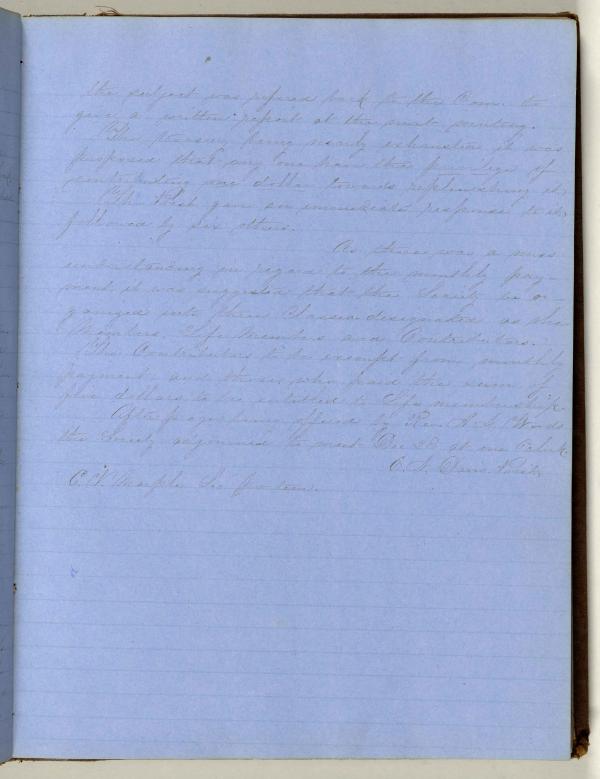 the subject was refered back to the Com. to
give a written report at the next meeting.
The treasury being nearly exhausted it was
proposed that any one have the privilege of
contributing one dollar towards replenishing it,
The Pres. gave an immediate response to it,
followed by six others.
As there was a miss
understanding in regard to the monthly pay-
ment it was suggested that the Society be or-
ganized into three Classes designated as the
Members, Life Members and Contributors.
The Contributors to be exempt from monthly
payment, and those who paid the sum of
five dollars to be entitled to Life membership.
After prayer being offered by Rev. Woods
the Society adjourned to meet Dec 28 at one Oclock.
C. N. Davis Pres.
C. V. Marple Sec pro tem.